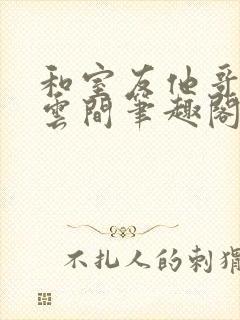 和室友他哥
雲間筆趣閣
不扎人的刺猬